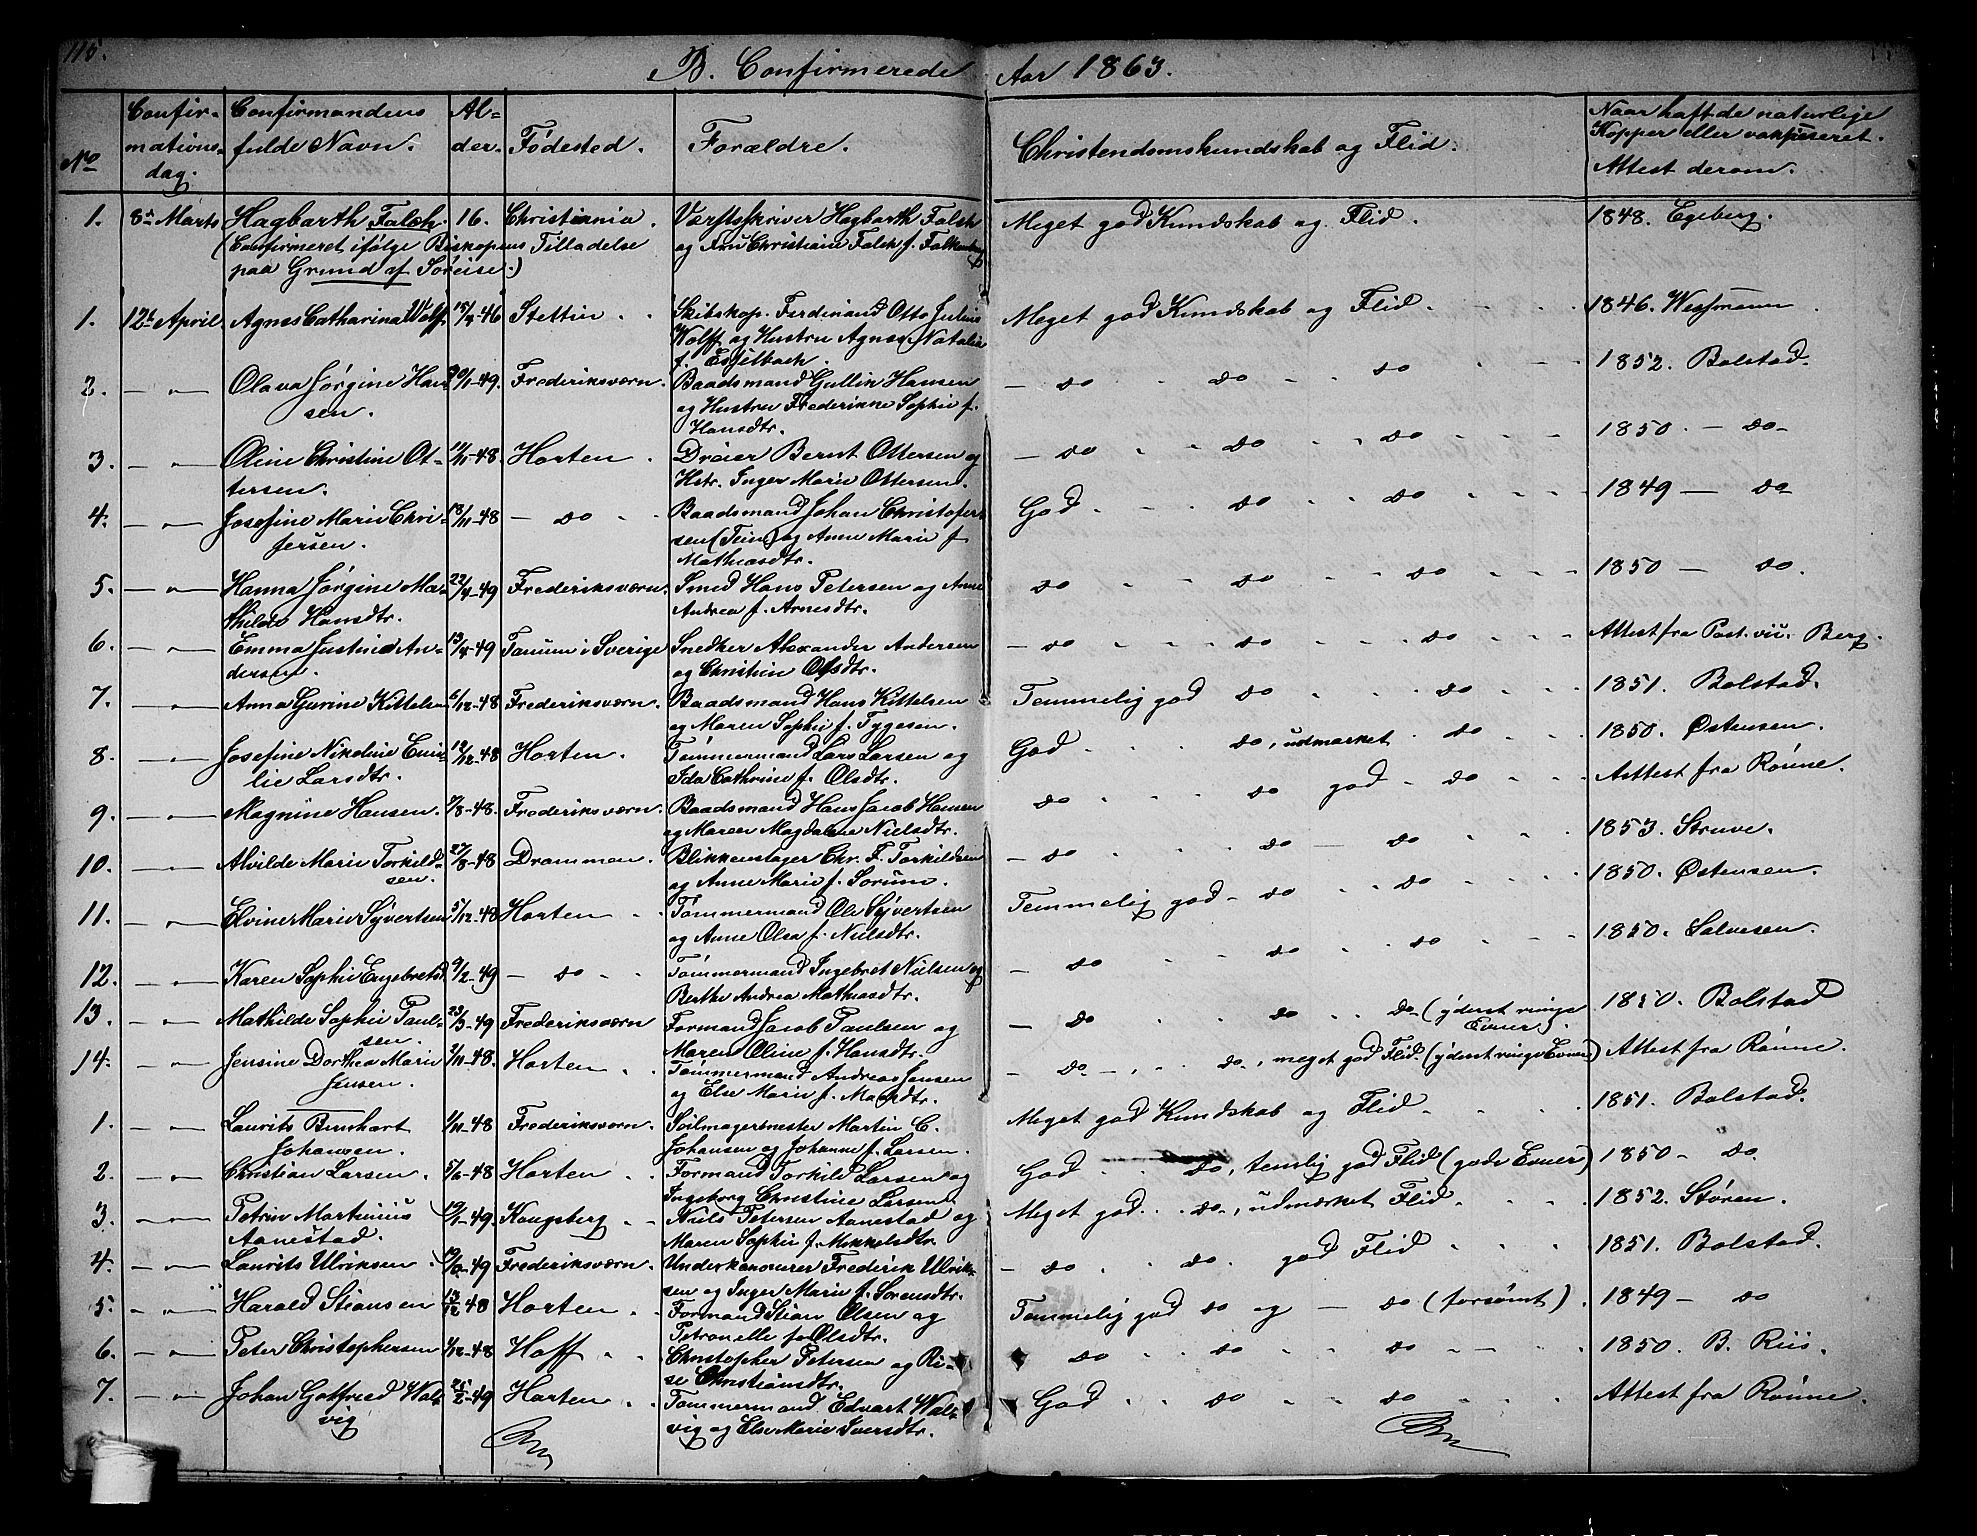 115.
B. Confirmerede Aar 1863.
No
Confirmationsdag.
Confirmandens fulde Navn.
Alder.
Fødested.
Forældre.
Christendomskundskab og Flid.
Naar haft de naturlige Kopper eller vakcineret. Attest derom.
1. 8de Marts Hagbarth Falch. 16. Christiania. Værftsskriver Hagbarth Falch Meget god Kundskab og Flid. 1848. Egeberg.
(Confirmeret ifølge Biskopens Tilladelse og Fru Christiane Falch f. Falkenberg
paa Grund af Søreise.)
1. 12te April Agnes Catharina Wolff 46 Stettin Skibskap. Ferdinand Otto Julius Meget god Kundskab og Flid. 1846. Wessmann
Wolff og Hustru Agnes Natalia
f. Esselbach.
2. Olava Jørgine Han- 49. Frederiksværn. Baadsmand Gullik Hansen do do do 1852. Bolstad.
sen. og Hustru Frederikke Sophie f.
Hansdtr.
3. Oline Christine Ot- 11/11-48 Horten. Dreier Bernt Ottersen og do do do 1850. do
tersen. Hstr. Inger Marie Ottersen.
4. Josefine Marie Chri- 18/11-48 do Baadsmand Johan Christofer- God do do 1849 do
fersen. sen og Anne Marie f.
Mathiasdtr.
5. Hanna Jørgine Ma- 22/4-49 Frederiksværn. Smed Hans Petersen og Anne do do do 1850 do.
thilde Hansdtr. Andrea f. Arnesdtr.
6. Emma Justine An- 49 Tanum i Sverige Snedker Alexander Andersen do do do Attest fra Past. vic. Berg.
dersen. og Christine Olsdtr.
7. Anna Gurine Kittelsen 6/12-48 Frederiksværn. Baadsmand Hans Kittelsen Temmelig god do do 1851. Bolstad.
og Maren Sophie f. Tygesen.
8. Josefine Nikoline Emi- 48 Horten. Tømmermand Lars Larsen og God do, udmærket do 1850. Østensen.
lie Larsdtr. Ida Cathrine f. Olsdtr.
9. Magnine Hansen. 48. Frederiksværn. Baadsmand Hans Jacob Hansen do do god do Attest fra Rønne.
og Maren Magdalene Nielsdtr.
10. Alvilde Marie Torkild- 27/8-48 Drammen. Blikkenslager Chr. F. Torkildsen do do do 1853. Struve.
sen. og Anne Marie f. Sorum.
11. Elvine Marie Syvertsen 5/12-48 Horten Tømmermand Ole Syvertsen Temmelig god do do 1850. Østensen.
og Anne Olea f. Nielsdtr.
12. Karen Sophie Engebretsd. 9/2-49 do Tømmermand Ingebret Nielsen og do do do 1850. Salvesen.
Berthe Andrea Mathiasdtr.
13. Mathilde Sophie Paul- 23/3-49 Frederiksværn Formand Jacob Paulsen og do do do (yderst ringe 1850. Bolstad
sen. Maren Oline f. Hansdtr. Evner).
14. Jensine Dorthea Marie 2/11-48. Horten Tømmermand Andreas Jensen do do, meget god Flid. (yderst ringe Evner) Attest fra Rønne.
Jensen. og Else Marie f. Madsdtr.
1. Laurits Bernhart 48 Frederiksværn. Seilmagermester Martin C. Meget god Kundskab og Flid 1851. Bolstad.
Johansen. Johansen og Johanne f. Larsen.
2. Christian Larsen. 48 Horten Formand Torkild Larsen og God do, temlig god Flid (gode Evner) 1850 do
Ingeborg Christine Larsen
3. Petrin Martinius 49 Kongsberg Niels Petersen Aanestad og Meget god do, udmærket Flid 1852. Støren.
Aanestad. Maren Sophie f. Mikkelsdtr.
4. Laurits Ulriksen 49 Frederiksværn. Underkanoneer Frederik Ulrik- do do. god Flid 1851. Bolstad.
sen og Inger Marie f. Sørensdtr.
5. Harald Stiansen 13/12 48 Horten Formand Stian Olsen og Temmelig god do og do (forsømt). 1849 do
Petronelle f. Olsdtr.
6. Peter Christophersen 48 Hoff Christopher Petersen og Ri- do do do 1850. B. Riis.
se Christiansdtr.
7. Johan Gotfried Wal- 49 Horten Tømmermand Edvart Wal- God do do Attest fra Rønne.
vig vig og Else Marie Iversdtr.